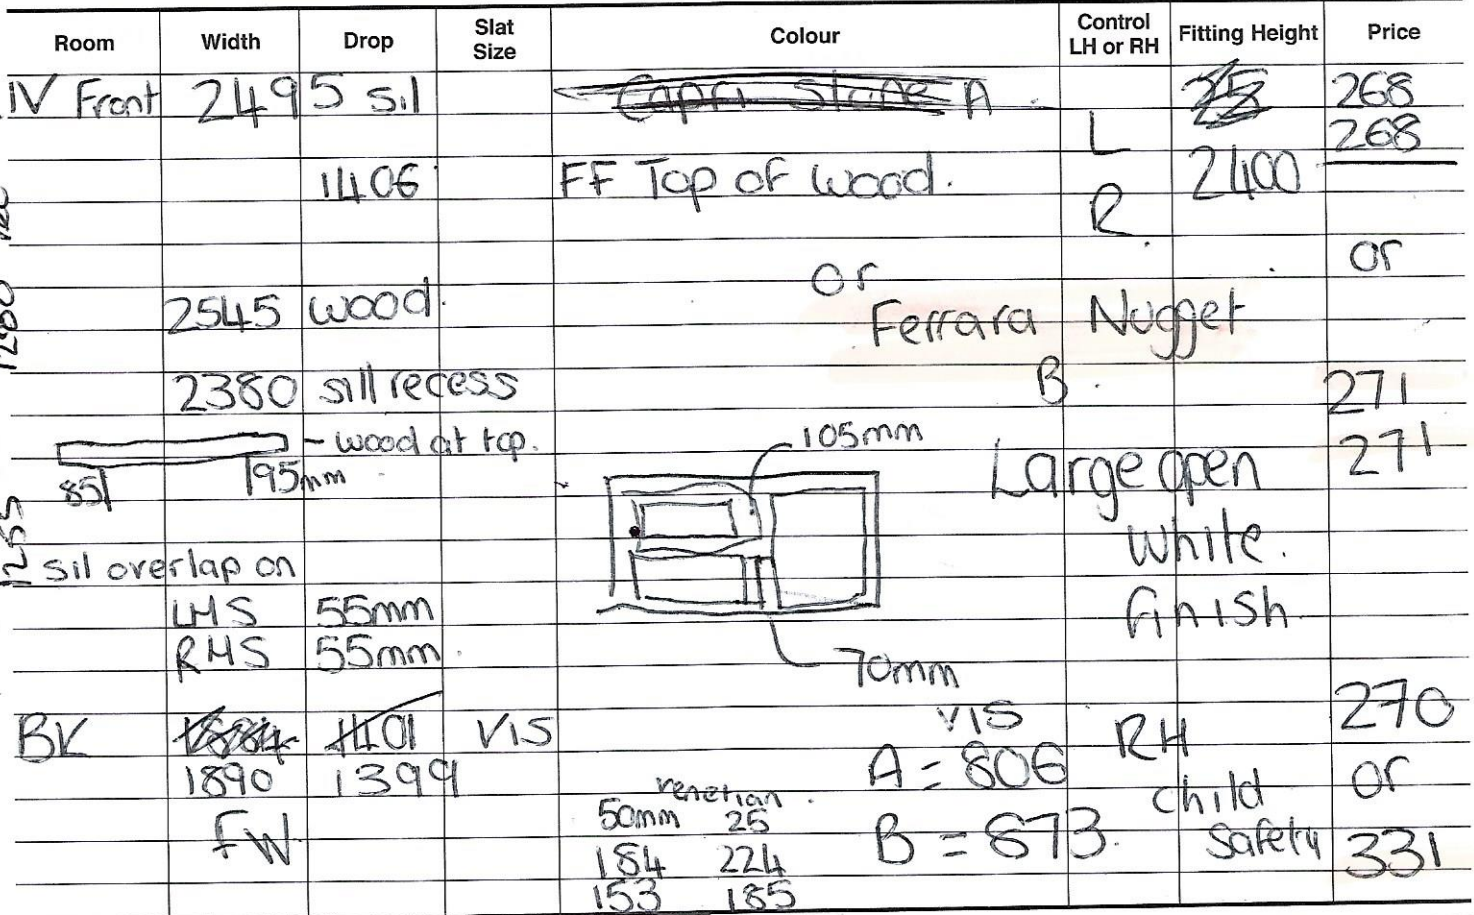 Room Width Drop Slat Size Colour Control LH or RH Fitting Height Price
IV Front 2495 sil Capri Stone A 268
L 268
1406 FF Top of wood. 2400
R
or or
2545 wood.
Ferrara Nugget
2380 sill recess B. 271
- wood at top. 105mm
85 95mm Large open 271
white.
sil overlap on
LHS 55mm finish
RHS 55mm.
70mm
BK 1884 1401 VIS VIS RH 270
1890 1399 A = 806 or
venetian child
FW 50mm 25 B = 873. safety 331
184 224
153 185
1280 rec
1255